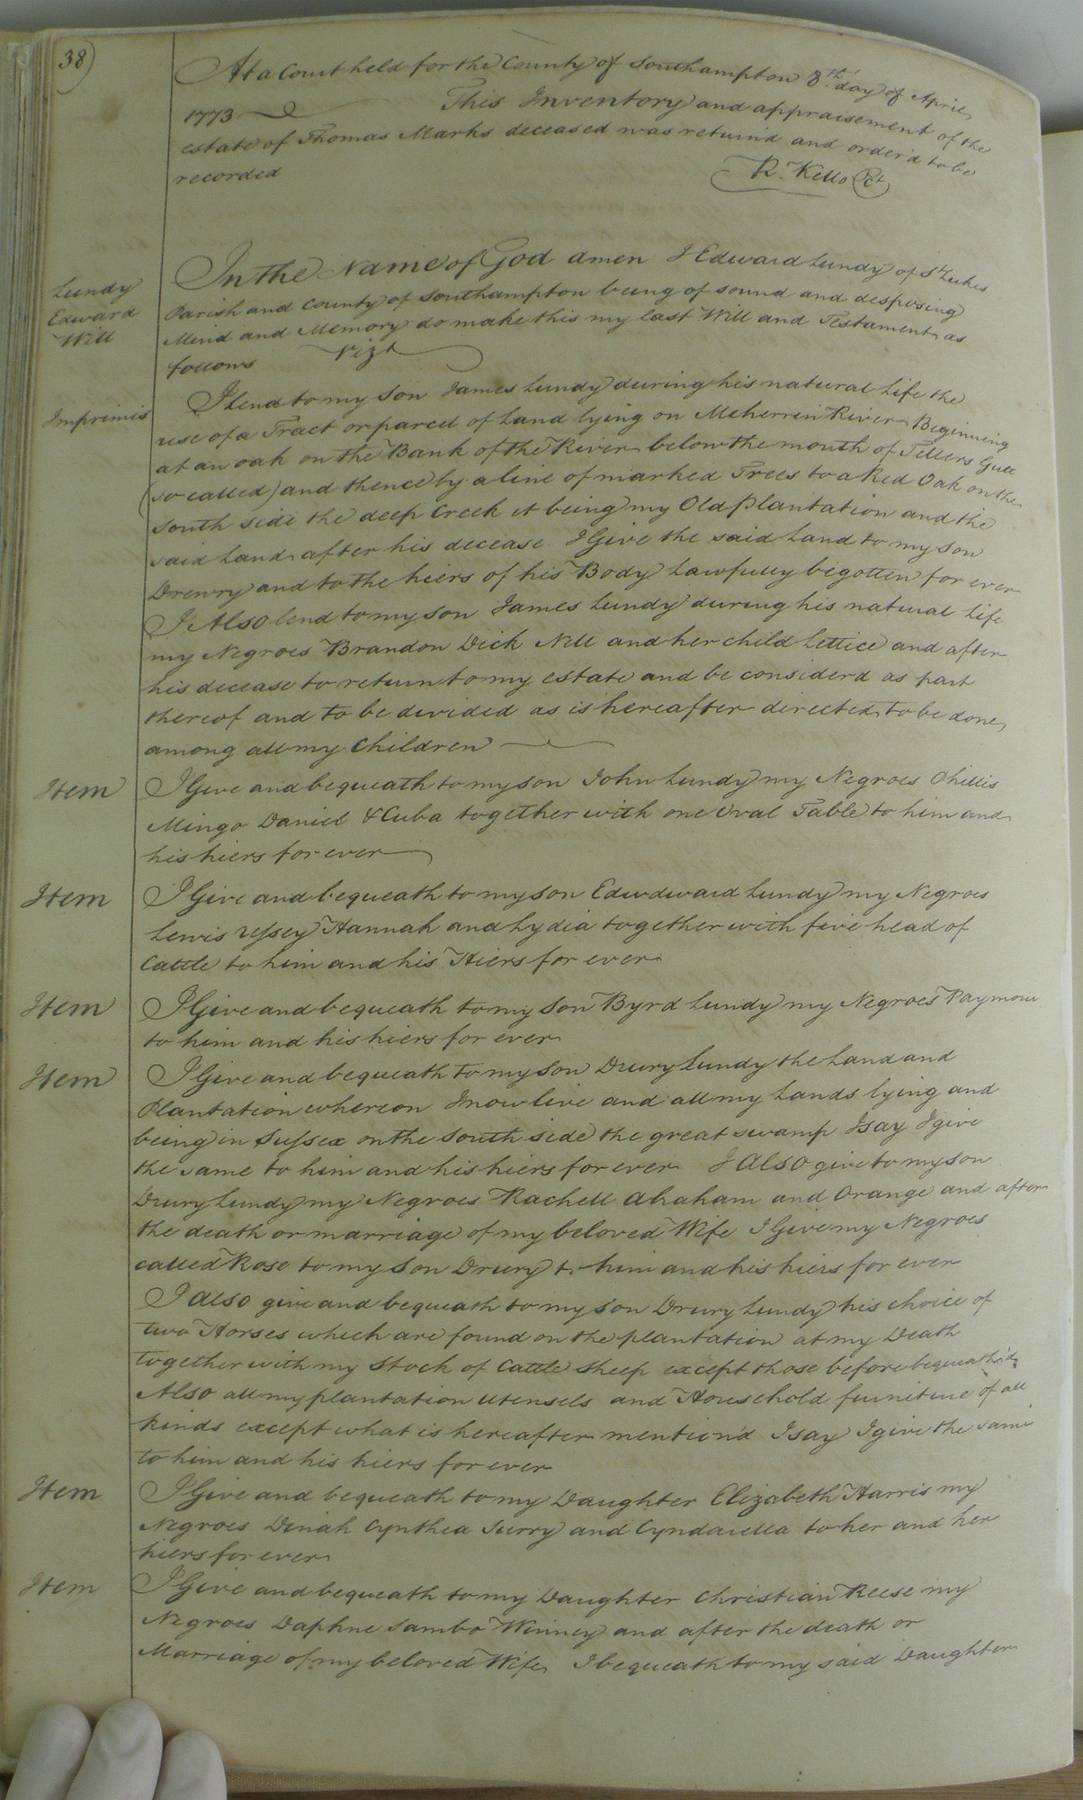 38)
At a Court held for the County of Southampton 8th day of April
1773 This Inventory and appraisement of the
estate of Thomas Marks deceased was return'd and order'd to be
recorded
R. Kello Ct
Lundy
Edward
Will
In the Name of God amen I Edward Lundy of St Lukes
Parish and County of Southampton being of sound and desposing
Mind and Memory do make this my last Will and Testament as
follows Vizt
Imprimis
I lend to my son James Lundy during his natural Life the
use of a Tract or parcel of Land lying on Meherrin River Beginning
at an oak on the Bank of the River below the mouth of Tellers Gutt
(so called) and thence by a line of marked Trees to a Red Oak on the
South side the deep Creek it being my Old Plantation and the
said Land after his decease I Give the said Land to my son
Drewry and to the hiers of his Body Lawfully begotten for ever
I Also lend to my son James Lundy during his natural Life
my Negroes Brandon Dick Nell and her child Lettice and after
his decease to return to my estate and be considerd as part
thereof and to be divided as is hereafter directed to be done
among all my Children
Item I Give and bequeath to my son John Lundy my Negroes Phillis
Mingo Daniel & Cuba together with one Oval Table to him and
his hiers for ever
Item I Give and bequeath to my son Edwdward Lundy my Negroes
Lewis Hannah and Lydia together with five head of
Cattle to him and his Hiers for ever
Item I Give and bequeath to my Son Byrd Lundy my Negroes
to him and his hiers for ever
Item I Give and bequeath to my son Drury Lundy the Land and
Plantation whereon I now live and all my Lands lying and
being in Sussex on the South side the great swamp I say I give
the same to him and his hiers for ever I also give to my son
Drury Lundy my Negroes Rachell Abraham and Orange and after
the death or marriage of my beloved Wife I Give my Negroes
called Rose to my Son Drury to him and his hiers for ever
I also give and bequeath to my son Drury Lundy his choice of
two Horses which are found on the plantation at my Death
together with my Stock of Cattle Sheep except those before bequeath'd
Also all my plantation utensels and Household furniture of all
kinds except what is hereafter mention'd I say I give the same
to him and his hiers for ever
Item I Give and bequeath to my Daughter Elizabeth Harris my
Negroes Dinah Cynthea Surry and Cyndarella to her and her
hiers for ever
Item I Give and bequeath to my Daughter Christian Reese my
Negroes Daphne Sambo Winney and after the death or
Marriage of my beloved Wife I bequeath to my said Daughter